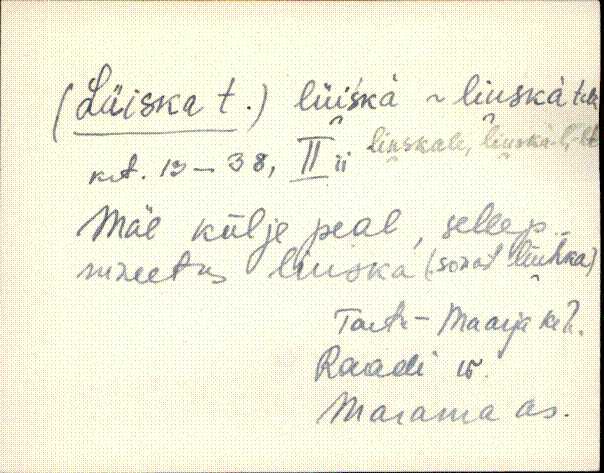 (Lüiska t.) lüiskä ~ liuskä tele
krt. 13-38, II ii liuskale, liuskä-
Mäe külje peal, sellep.
nimetus liuska (sõnast liuhka)
Tartu-Maarja khk.
Raadi v.
Marama as.